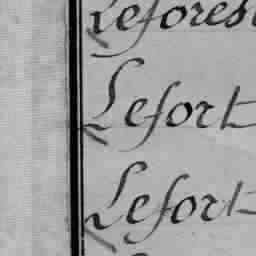 Leforest
Lefort
Lefort